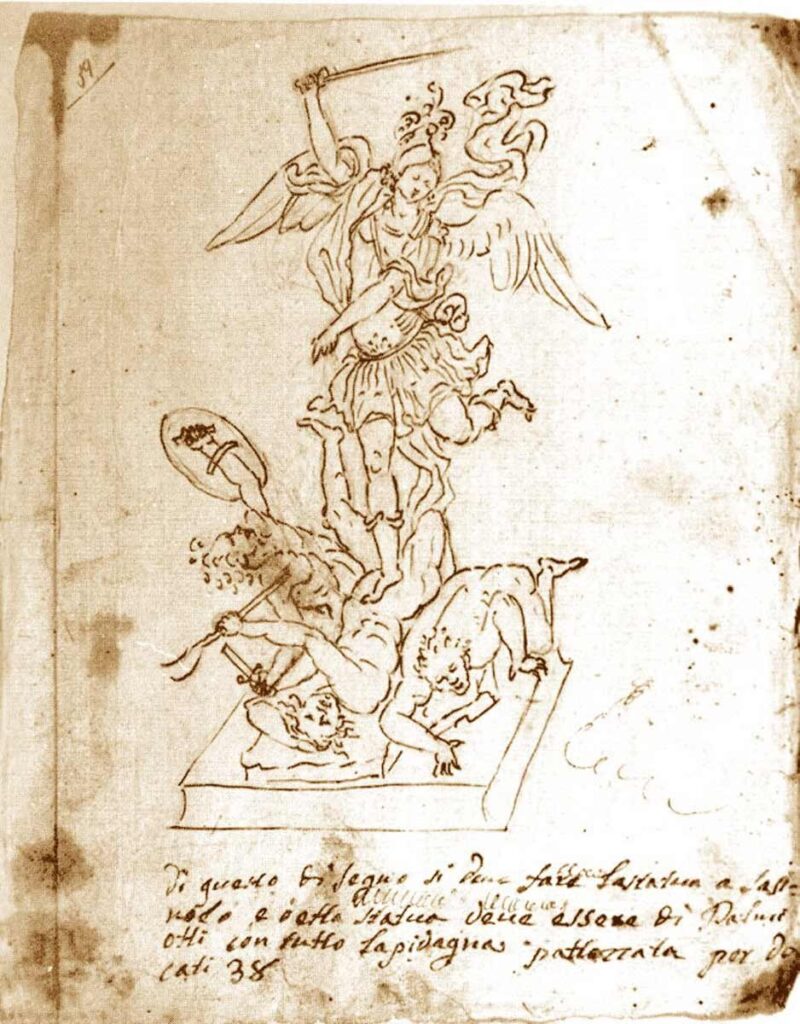 59
Di questo disegno si deve fare lastatua a
e detta statua deve essere di Palmi
otti con tutto lapidagna pattezzata per du
cati 38